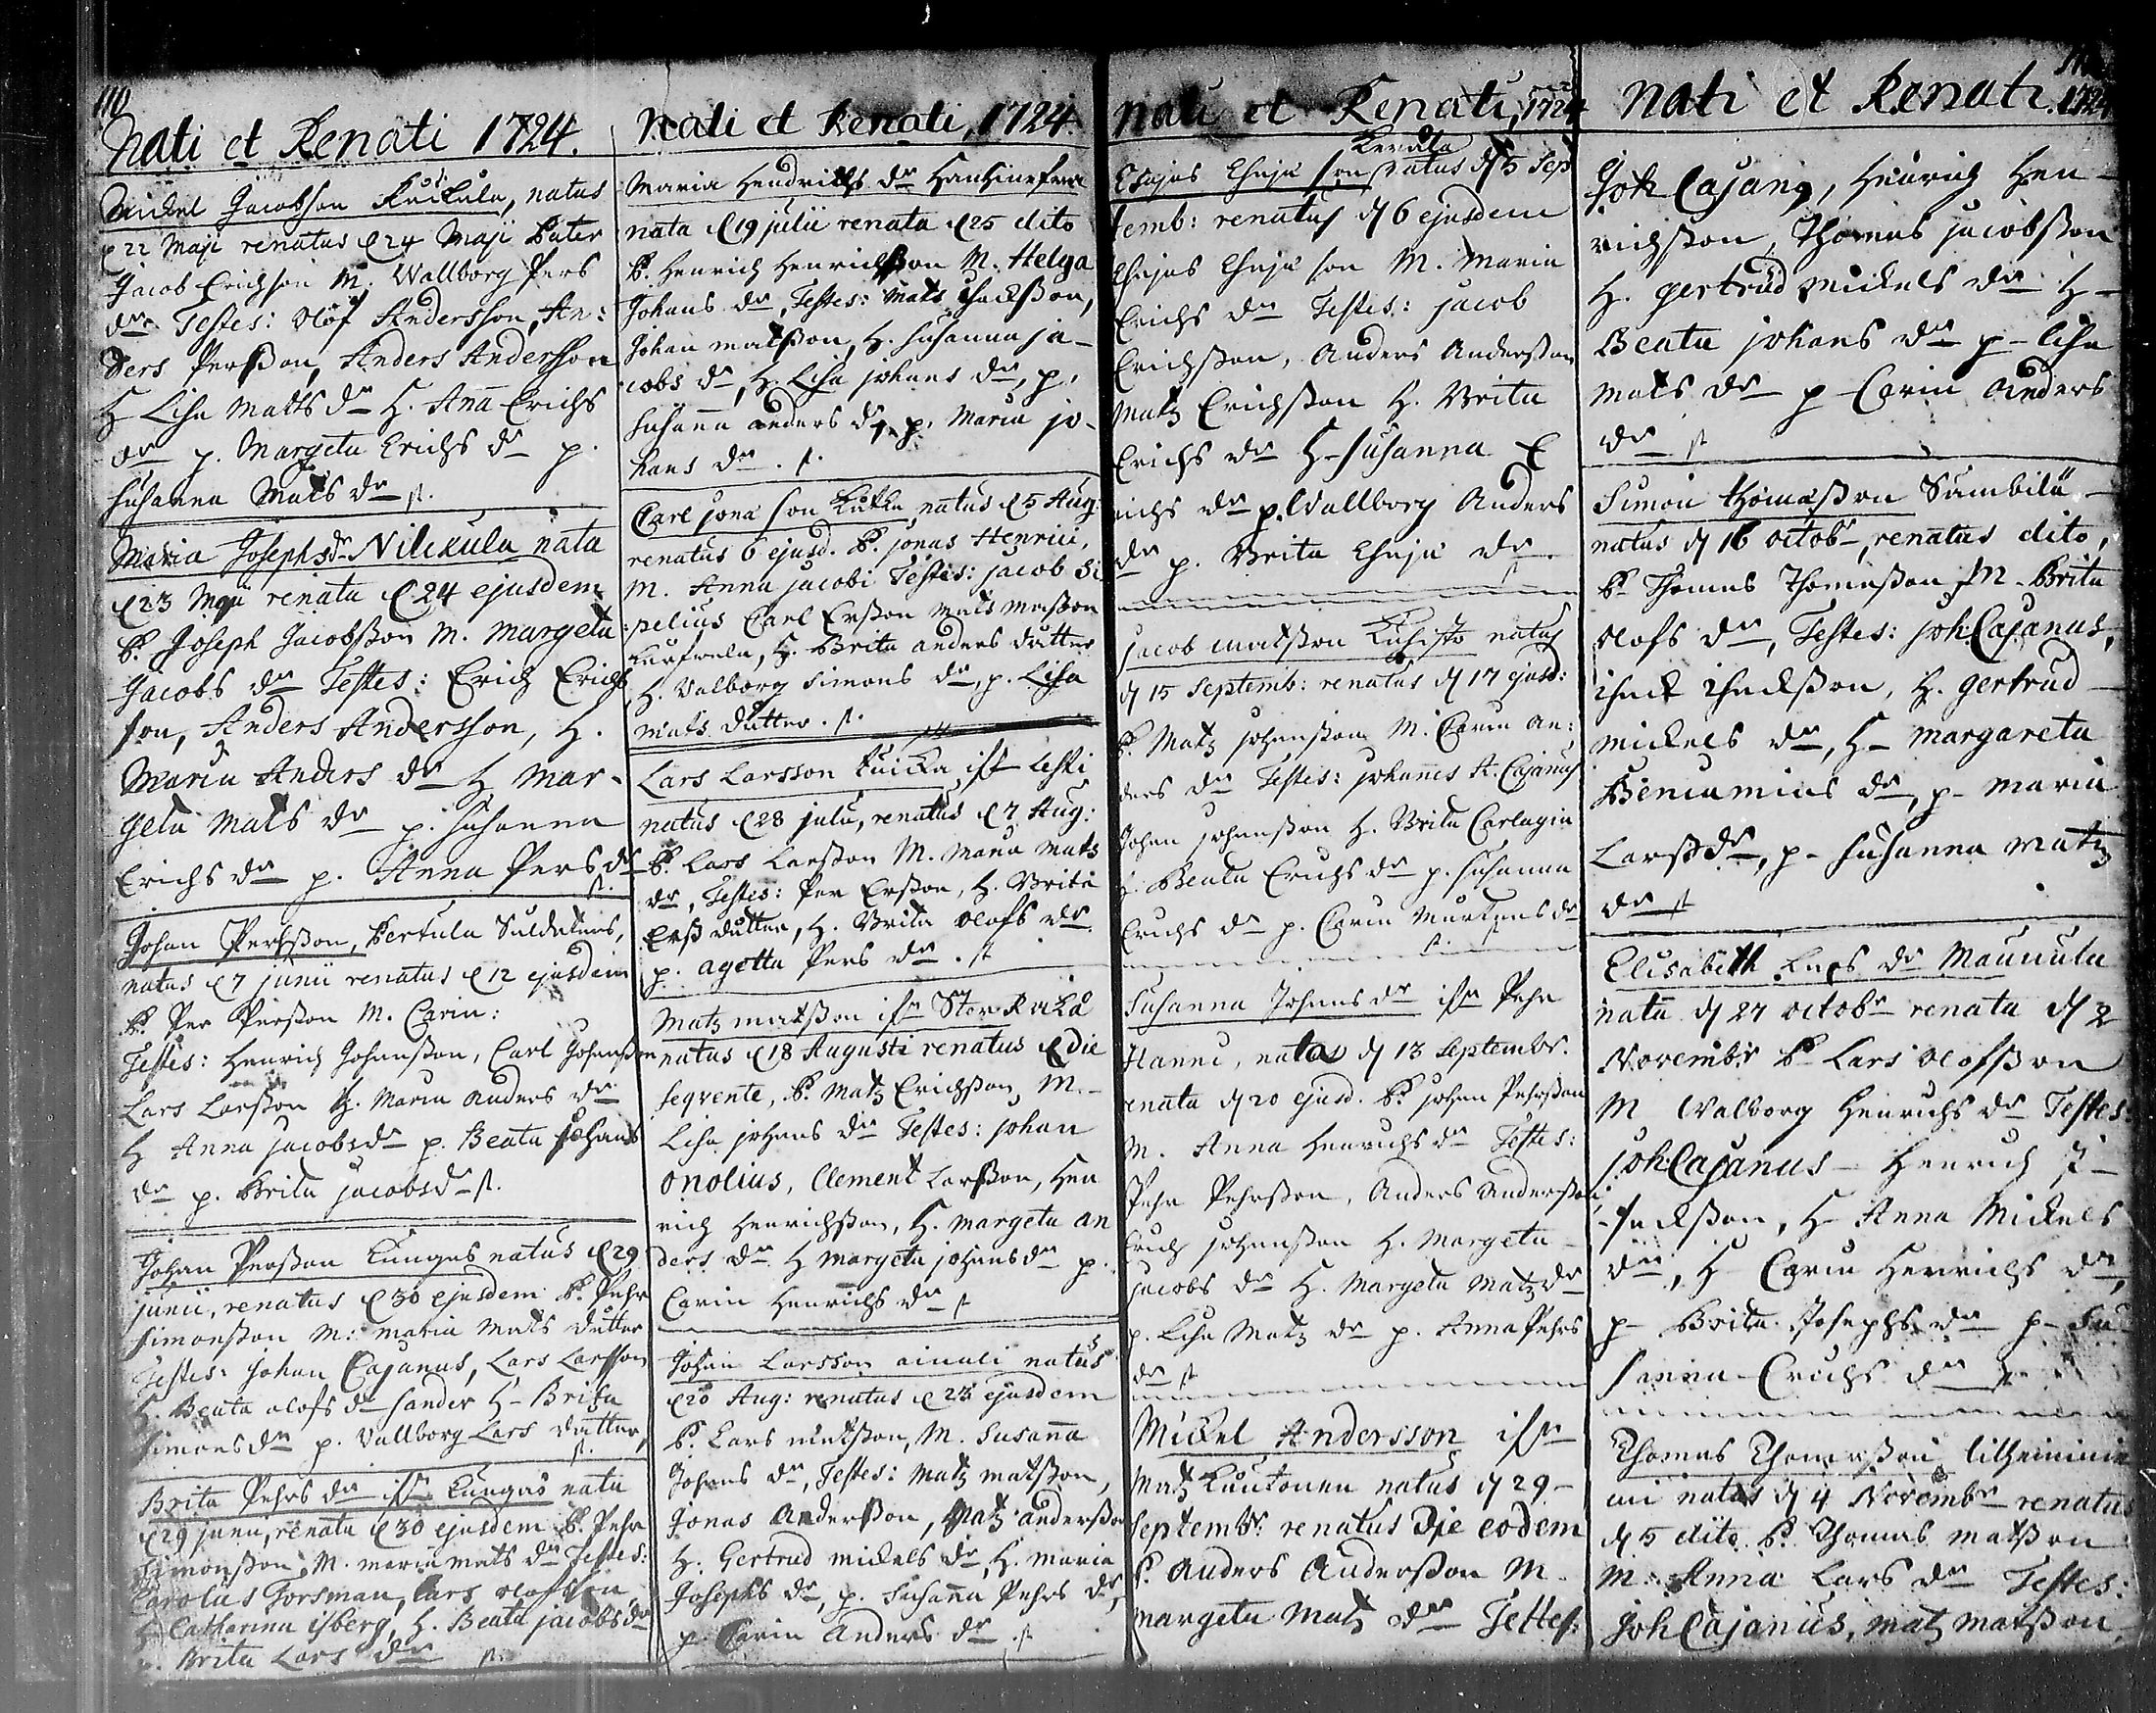 110
Nati et Renati 1724.
Mickel Jacobsson Kuckula, natus
d 22 Maji renatus d 24 Maji Pater
Jacob Erichson M. Wallborg Pers
dr Testes: Olof Andersson, An:
ders Persson, Anders Andersson
H Lisa Matts dr H. Anna Erichs
dr p. Margeta Erichs dr p.
Susanna Mats dr st.
Maria Josephsdr Nilckula nata
d 23 Maji renata d 24 ejusdem
P. Joseph Jacobsson M. Margeta
Jacobs dr Testes: Erich Erichs
son, Anders Andersson, H.
Maria Anders dr H Mar-
geta Mats dr p. Susanna
Erichs dr p. Anna Pers dr
st.
Johan Persson, Pertula Suldatens,
natus d 7 junii renatus d 12 ejusdem
P. Per Persson M. Carin:
Testes: Henrich Johansson, Carl Johansson
Lars Larsson H. Maria Anders dr
H Anna Jacobsdr p. Beata Johans
dr p. Brita Jacobsd st.
Johan Persson Kungas natus d 29
junii, renatus d 30 ejusdem P. Pehr
Simonsson M: Maria Mats dutter
Testes: Johan Cajanus, Lars Larsson
H. Beata Olofs dr Sander H- Brita
Simonsdr p. Vallborg Lars dutter,
st.
Brita Pehrs dr ifrn Kungas nata
d 29 junii, renata d 30 ejusdem P. Pehr
Simonsson, M. Maria Mats dr Testes:
Carolus Forsman, Lars Olofsson
H Catharina Isberg, H. Beata Jacobsdr
p. Brita Lars dr st.
Nati et Renati, 1724.
Maria Hendrichs dr
nata d 19 julii renata d 25 dito
P. Henrich Henrichsson M. Helga
Johans dr, Testes: Mats
Johan Matsson, H. Susanna Ja-
cobs dr, H. Lisa Johans dr, p.
Susanna Anders dr, p. Maria Jo-
hans dr. st.
Carl Jona son natus d 5 Aug:
renatus 6 ejusd. P. Jonas Henrici,
M. Anna Jacobi Testes: Jacob
Carl Ersson Mats Masson
H. Brita Anders dutter
H. Valborg Simons dr, p. Lisa
Mats dutter. st.
Lars Larsson Kuicka ifr Leski
natus d 28 julii, renatus d 7 Aug:
P. Lars Larsson M. Maria Mats
dr, Testes: Per Ersson, H. Brita
Erss dutter, H. Brita Olofs dr
p. Agetta Pers dr. st
Matz Matsson ifrn Stor
natus d 18 Augusti renatus d die
seqvente, P. Matz Erichsson, M.-
Lisa Johans dr Testes: Johan
Onolius, Clement Larsson, Hen
rich Henrichsson, H. Margeta An
ders dr H Margeta Johansdr p.
Carin Henrichs dr st
Johan Larsson Ainali natus
d 20 Aug: renatus d 23 ejusdem
P. Lars Matsson, M. Susanna
Johans dr, Testes: Matz Matsson,
Jonas Andersson, Matz Andersson
H. Gertrud Mickels dr, H. Maria
Josephs dr, p. Susanna Pehrs dr,
p. Carin Anders dr. st
Nati et Renati, 1724
Kerula
Esajas Esaja son natus d 5 Sep
temb: renatus d 6 ejusdem
Esajas Esaja son M. Maria
Erichs dr Testes: Jacob
Erichsson, Anders Andersson
Matz Erichsson H. Brita
Erichs dr H- Susanna E
richs dr p. Wallborg Anders
dr p. Brita Esaja dr.
Jacob Matsson natus
d 15 Septemb: renatus d 17 ejusd:
P. Matz Johansson M. Carin An:
ders dr Testes: Johannes A. Cajanus
Johan Johansson H. Brita
H. Beata Erichs dr p. Susanna
Erichs dr p. Carin dr
st.
Susanna Johansdr ifrn Pehr
Hannu, nata d 13 Septembr.
renata d 20 ejusd. P. Johan Pehrsson
M. Anna Henrichs dr Testes:
Pehr Pehrsson, Anders Andersson,
Erich Johansson H. Margeta
Jacobs dr H. Margeta Matzdr
p. Lisa Matz dr p. Anna Pehrs
dr st
Mickel Andersson ifrn
Matz natus d 29-
Septembr: renatus die eodem
P. Anders Andersson M.
Margeta Matz dr Testes:
Nati et Renati. 1724
Joh Cajang, Henrich Hen-
richsson, Thomas Jacobsson
H. Gertrud Mickels dr H-
Beata Johans dr p- Lisa
Mats dr p Carin Anders
dr st
Simon Thomasson Sambilu-
natus d 16 Octobr, renatus dito,
P Thomas Thomasson M- Brita
Olofs dr, Testes: Joh: Cajanus,
H. Gertrud
Mickels dr, H- Margareta
Beniamins dr, p- Maria
Larssdr, p- Susanna Matz
dr st
Elisabeth Lars dr Maunula
nata d 27 Octobr renata d 2
Novembr P Lars Olofsson
M Valborg Henrichs dr Testes:
Joh: Cajanus- Henrich I-
sacksson, H- Anna Mickels
dr, H Carin Henrichs dr,
p- Brita Josephs dr p- Su-
sanna Erichs dr st
Thomas Thomasson
natus d 4 Novembr- renatus
d 5 dito. P. Thomas Matsson
M: Anna Lars dr Testes:
Joh Cajanus, Matz Matsson,